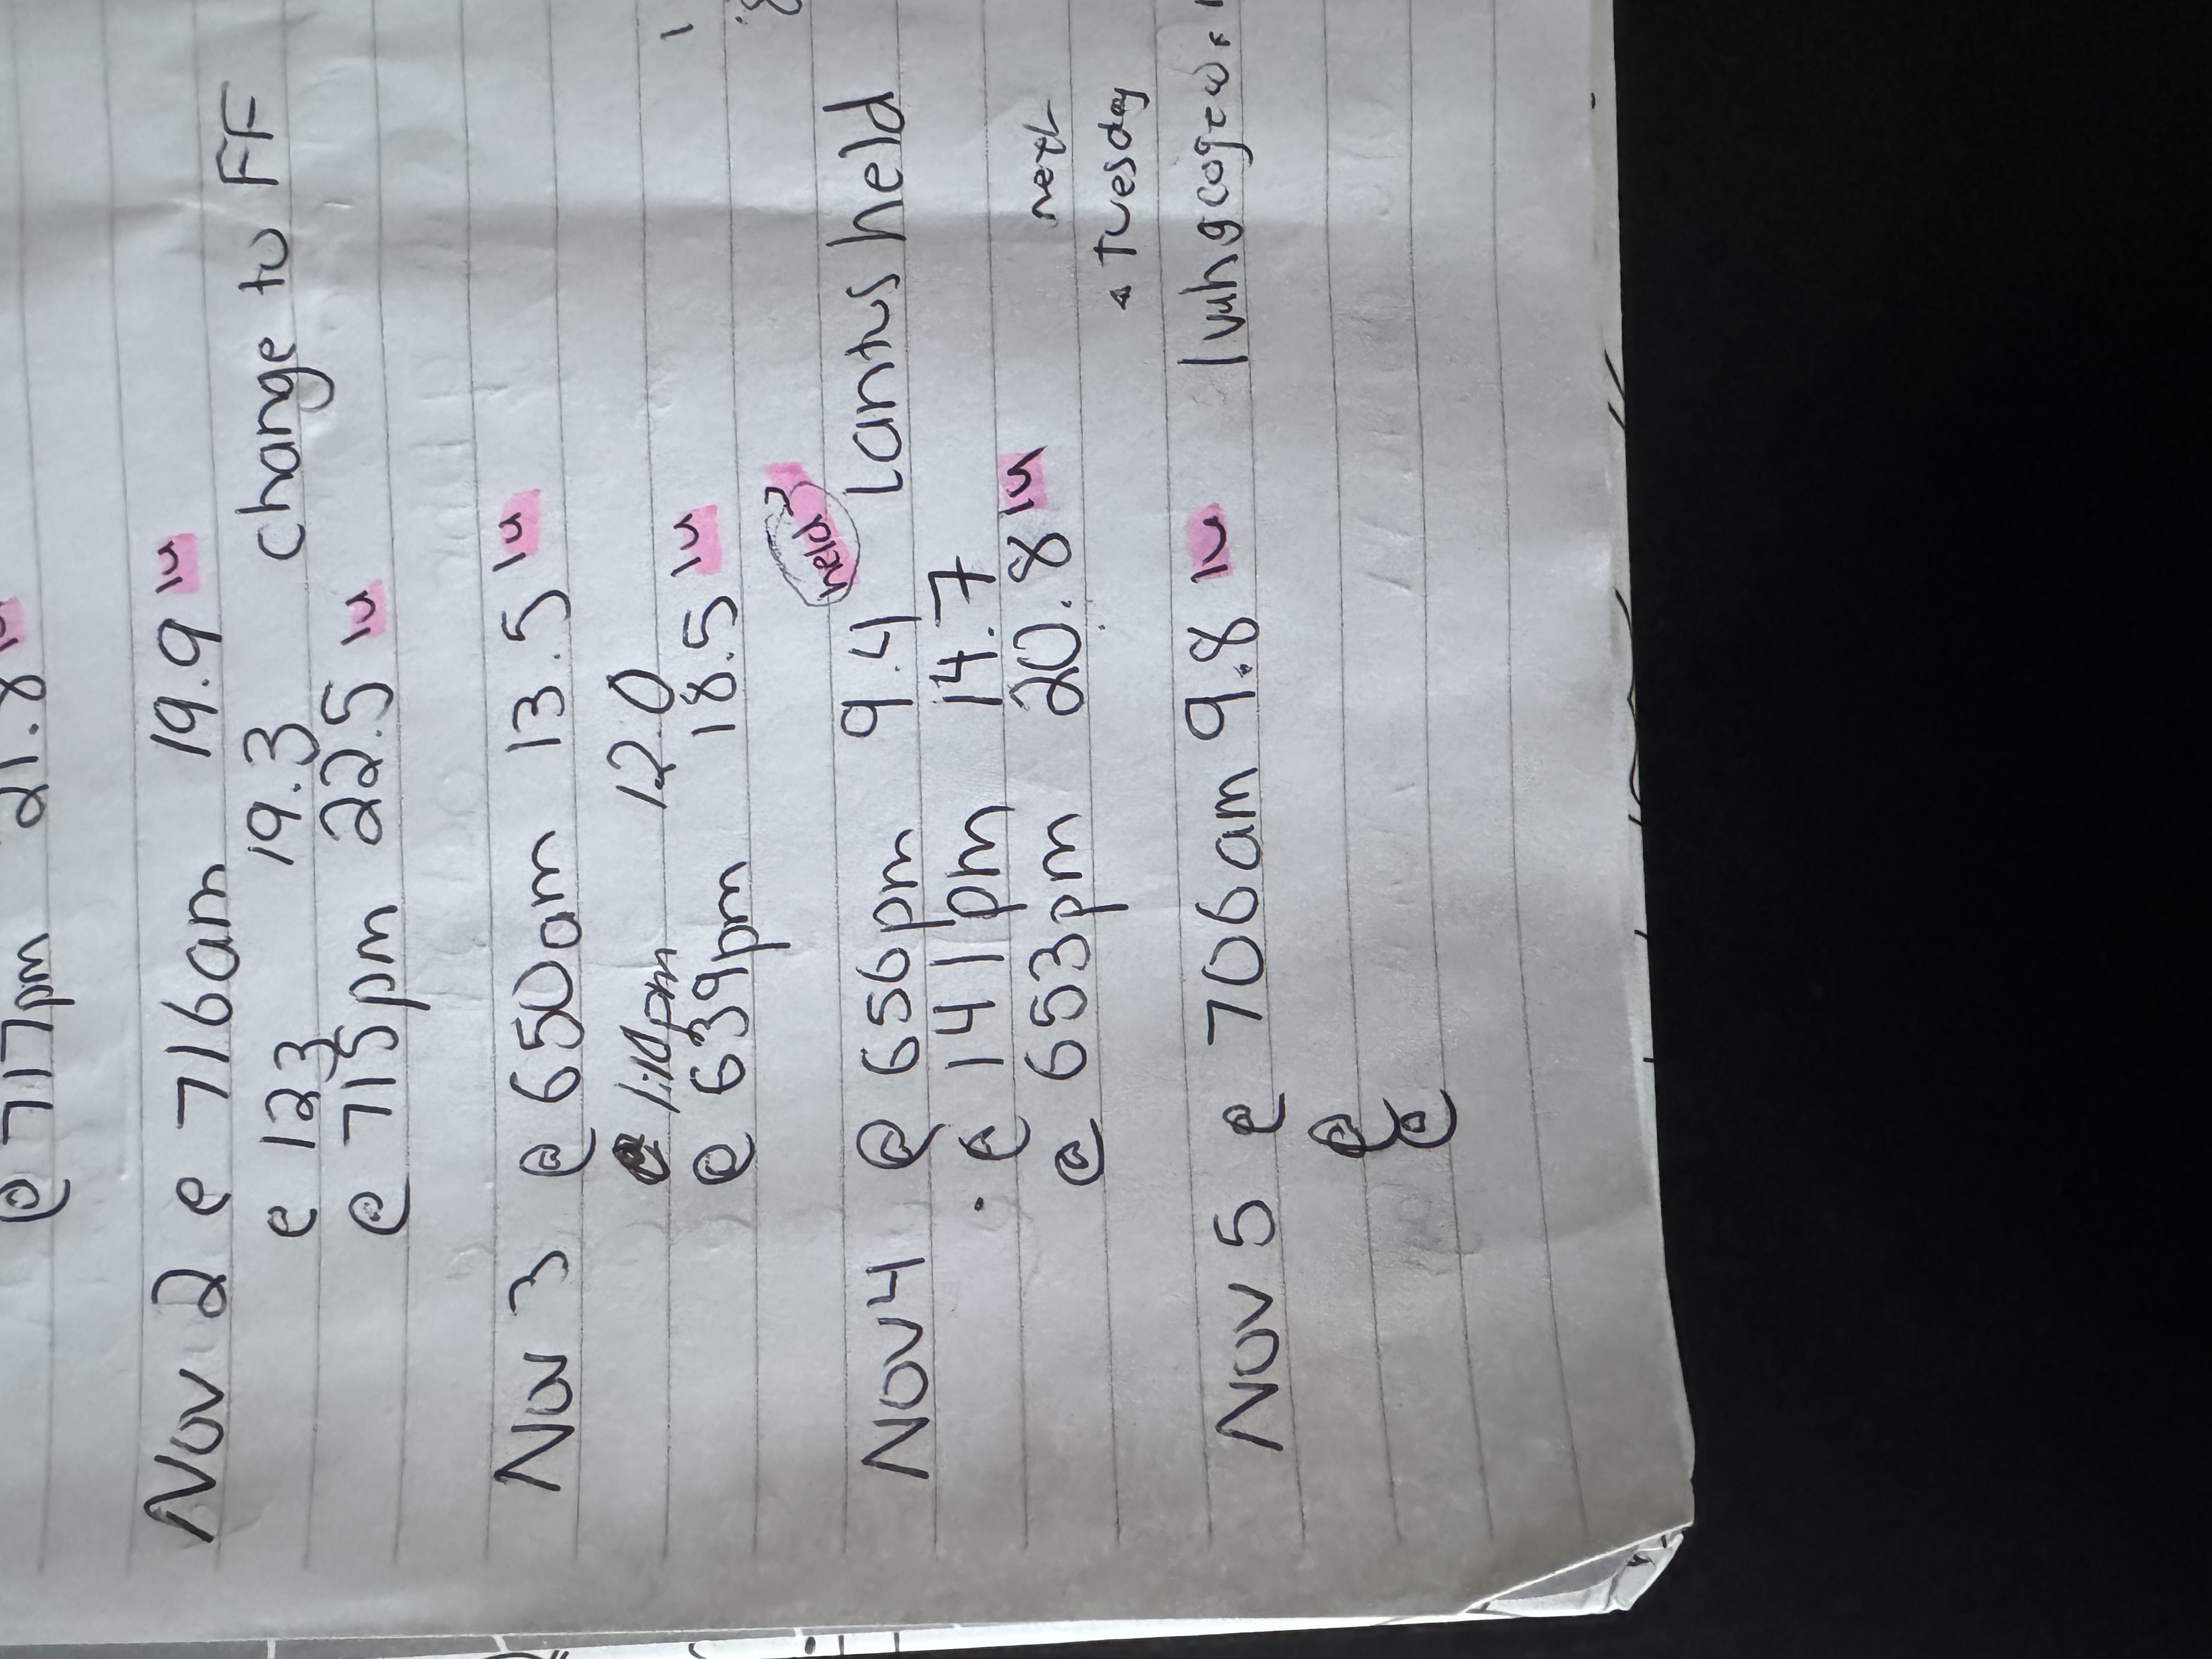 @ 717pm 21.8 1u
Nov 2 @ 716am 19.9 1u
@ 123 19.3 change to FF
@ 715pm 22.5 1u
Nov 3 @ 650am 13.5 1u
@ 1:10pm 12.0
@ 639pm 18.5 1u
held
Nov 4 @ 656pm 9.4 Lantus held
@ 141pm 14.7
@ 653pm 20.8 1u next
Tuesday
Nov 5 @ 706am 9.8 1u
@
@